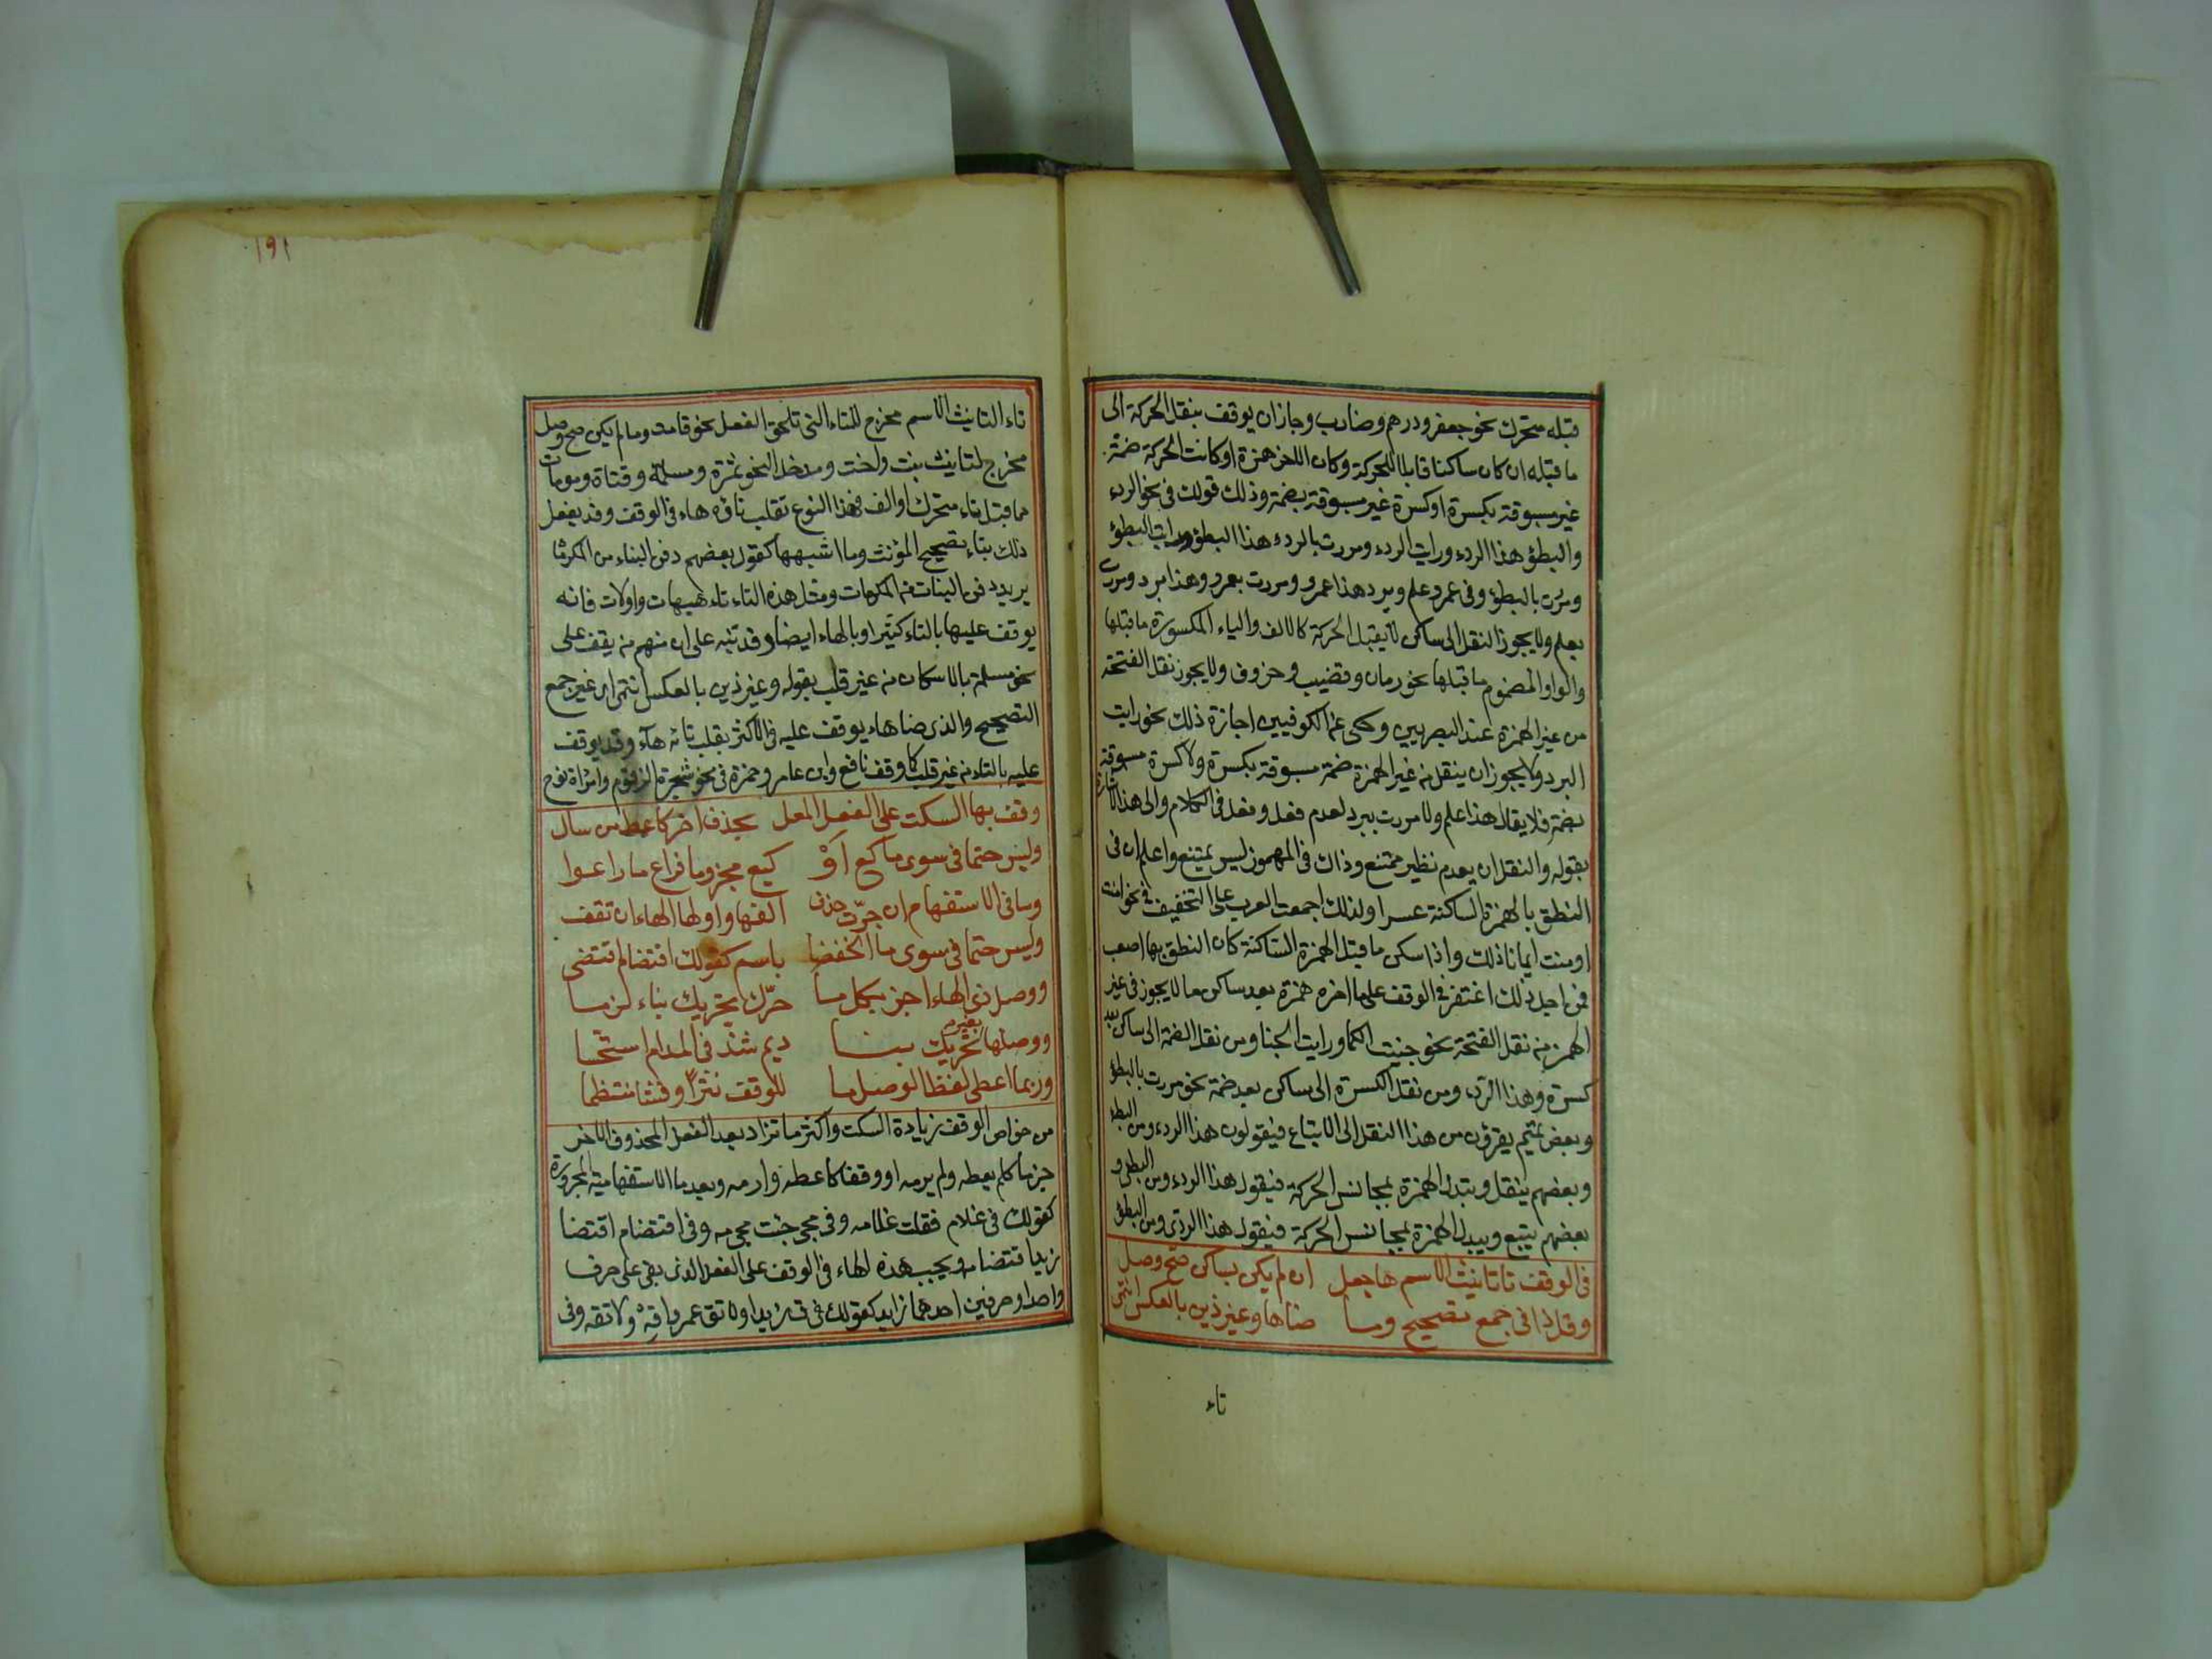 قبله متحرك نحو جعفر ودرهم وضارب وجاز ان يوقف بنقل الحركة الى
ما قبله ان كان ساكنا قابلا للحركة وكان الاخر همزة او كانت الحركة ضمة
غير مسبوقة بكسرة او كسرة غير مسبوقة بضمة وذلك قولك فى نحو الردء
والبطؤ هذا الردء ورايت الردء ومررت بالردء هذا البطؤ ورايت البطؤ
ومررت بالبطؤ وفى عمرو علم وبرد هذا عمرو ومررت بعمرو وهذا برد ومررت
بعلم ولا يجوز النقل الى ساكن لا يقبل الحركة كالالف والياء المكسورة ما قبلها
والواو المضموم ما قبلها نحو رمان وقضيب وخروف ولا يجوز نقل الفتحة
من غير الهمزة عند البصريين وحكى عن الكوفيين اجازة ذلك نحو رايت
البرد ولا يجوز ان ينقل من غير الهمزة ضمة مسبوقة بكسرة ولا كسرة مسبوقة
بضمة فلا يقال هذا علم ولا مررت ببرد لعدم فعل وفعل فى الكلام والى هذا الاشارة
بقوله والنقل ان يعدم نظير ممتنع وذاك فى المهموز ليس يمتنع واعلم ان فى
النطق بالهمزة الساكنة عسرا ولذلك اجمعت العرب على التخفيف فى نحو امنت
اومنت ايمانا ذلك واذا سكن ما قبل الهمزة الساكنة كان النطق بها اصعب
فمن اجل ذلك اغتفر فى الوقف على ما اخره همزة بعد ساكن ما لا يجوز فى غير
الهمز من نقل الفتحة نحو جنيت الكما ورايت الخبا ومن نقل الضمة الى ساكن بعد
كسرة وهذا الردء ومن نقل الكسرة الى ساكن بعد ضمة نحو مررت بالبطؤ
وبعض تميم يفرون من هذا النقل الى الاتباع فيقولون هذا الردء ومن البطؤ
وبعضهم ينقل ويبدل الهمزة بمجانس الحركة فيقول هذا الردو ومن البطى و
بعضهم يتبع ويبدل الهمزة بمجانس الحركة فيقول هذا الردى ومن البطؤ
فى الوقف تا تانيث الاسم ها جعل ان لم يكن بساكن صح وصل
وقل ذا فى جمع تصحيح وما ضاها وغير ذين بالعكس انتمى
تاء
١٩١
تاء التانيث الاسم مخرج للتاء التى تلحق الفعل نحو قامت وما لم يكن صح وصل
مخرج لتانيث بنت واخت ومدخل لنحو ثمرة ومسلمة وفتاة ومومات
مما قبل تاء متحرك او الف فهذا النوع تقلب تاؤه هاء فى الوقف وقد يفعل
ذلك بتاء تصحيح المؤنث وما اشبهها كقول بعضهم دفن البناه من المكرماه
يريد دفن البنات من المكرمات ومثل هذه التاء تاء هيهات واولات فانه
يوقف عليها بالتاء كثيرا وبالهاء ايضا وقد تنبه على ان منهم من يقف على
نحو مسلمة بالاسكان من غير قلب بقوله وغير ذين بالعكس انتمى اى غير جمع
التصحيح والذى ضاهاه يوقف عليه فى الاكثر بقلب تائه هاء وقد يوقف
عليه بالتاء من غير قلب كما وقف نافع وابن عامر وحمزة فى نحو شجرة الزقوم وامراة نوح
وقف بها السكت على الفعل المعل بحذف اخر كاعط من سال
وليس حتما فى سوى ما كع او كيع مجزوما فراع ما راعوا
وما فى الاستفهام ان جرّت حذف الفها واولها الهاء ان تقف
وليس حتما فى سوى ما انخفضا باسم كقولك اقتضام اقتضى
ووصل ذى الهاء اجز بكل ما حرّك تحريك بناء لزما
ووصلها بغير تحريك بنا ديم شذ فى المدام استحسا
وربما اعطى لفظ الوصل ما للوقف نثرا وفشا منتظما
من خواص الوقف زيادة السكت واكثر ما تزاد بعد الفعل المحذوف الاخر
جزما كلم يعطه ولم يرمه او وقفا كاعطه وارمه وبعد ما الاستفهامية المجرورة
كقولك فى غلام فقلت غلامه وفى مجى جئت مجى مه وفى اقتضام اقتضا
زيد اقتضامه ويجب هذه الهاء فى الوقف على الفعل الذى بقى على حرف
واحد او حرفين احدهما زايد كقولك فى ق زيدا ولا تق عمرا قه ولا تقه وفى